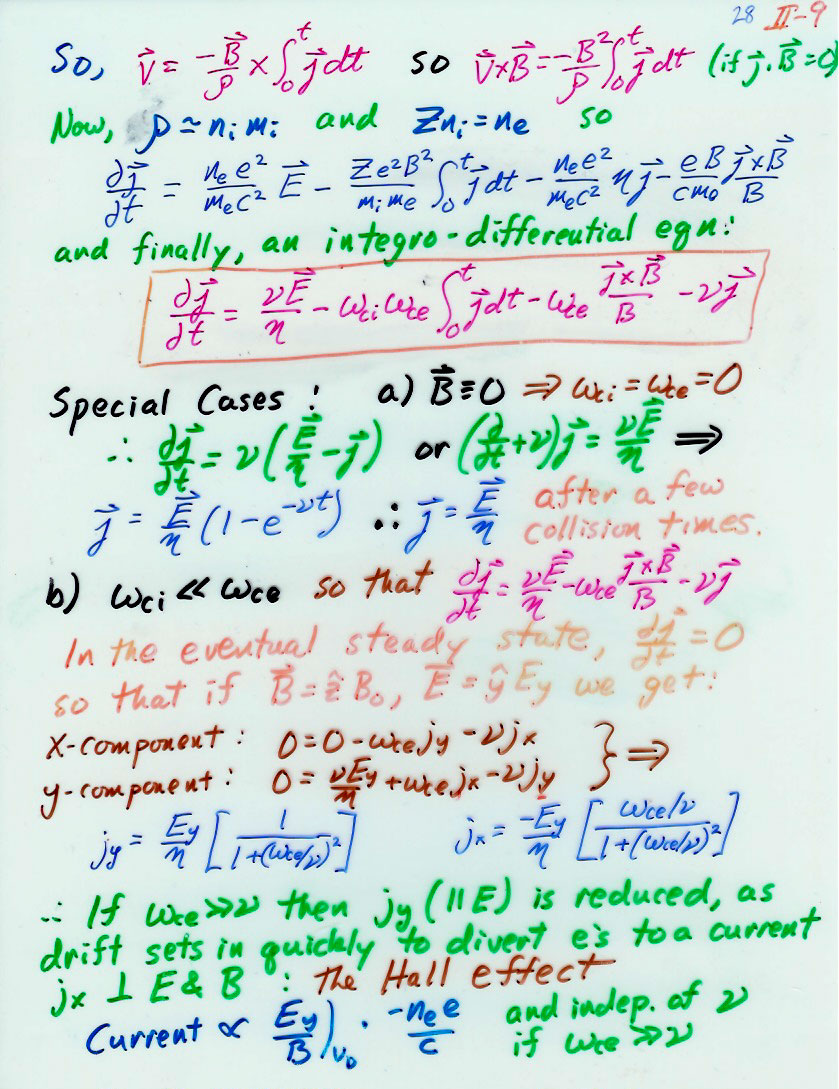 28 II-9
So, v⃗ = -B⃗/ρ × ∫₀ᵗ j⃗ dt so v⃗×B⃗ = -B²/ρ ∫₀ᵗ j⃗ dt (if j⃗·B⃗=0)
Now, ρ ≃ nᵢmᵢ and Znᵢ = nₑ so
∂j⃗/∂t = nₑe²/mₑc² E⃗ - Ze²B²/mᵢmₑ ∫₀ᵗ j⃗ dt - nₑe²/mₑc² ηj⃗ - eB/cmₑ j⃗×B⃗/B
and finally, an integro-differential eqn:
∂j⃗/∂t = νE⃗/η - ω_ci ω_ce ∫₀ᵗ j⃗ dt - ω_ce j⃗×B⃗/B - νj⃗
Special Cases: a) B⃗≡0 ⇒ ω_ci = ω_ce = 0
∴ ∂j⃗/∂t = ν(E⃗/η - j⃗) or (d/dt + ν)j⃗ = νE⃗/η ⇒
j⃗ = E⃗/η (1-e^(-νt)) ∴ j⃗ = E⃗/η after a few
collision times.
b) ω_ci ≪ ω_ce so that ∂j⃗/∂t = νE⃗/η - ω_ce j⃗×B⃗/B - νj⃗
In the eventual steady state, ∂j⃗/∂t = 0
so that if B⃗ = ẑB₀, E⃗ = ŷE_y we get:
x-component: 0 = 0 - ω_ce j_y - νj_x
y-component: 0 = νE_y/η + ω_ce j_x - νj_y } ⇒
j_y = E_y/η [1/(1+(ω_ce/ν)²)] j_x = -E_y/η [(ω_ce/ν)/(1+(ω_ce/ν)²)]
∴ If ω_ce ≫ ν then j_y (∥E) is reduced, as
drift sets in quickly to divert e's to a current
j_x ⊥ E & B : the Hall effect
Current ∝ E_y/B)_{v_D} · -nₑe/c and indep. of ν
if ω_ce ≫ ν